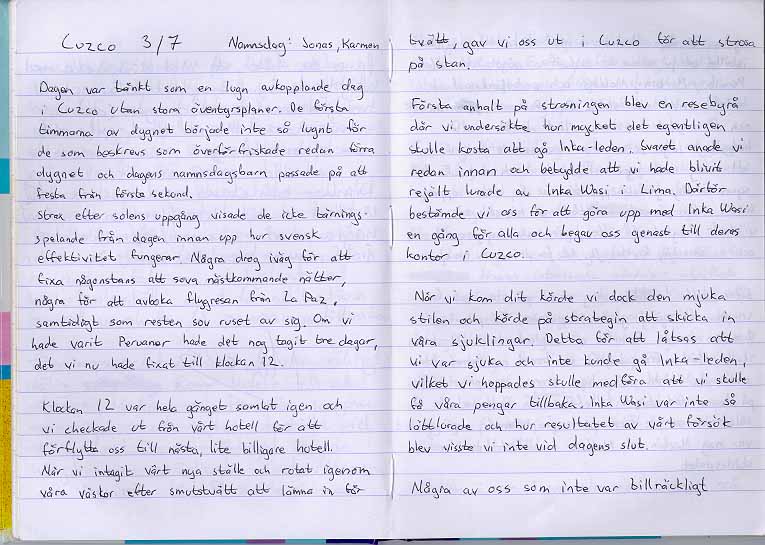 Cuzco 3/7 Namnsdag: Jonas, Karmen
Dagen var tänkt som en lugn avkopplande dag
i Cuzco utan stora äventyrsplaner. De första
timmarna av dygnet började inte så lugnt för
de som beskrevs som överförfriskade redan förra
dygnet och dagens namnsdagsbarn passade på att
festa från första sekond.
Strax efter solens uppgång visade de icke tärnings-
spelande från dagen innan upp hur svensk
effektivitet fungerar. Några drog iväg för att
fixa någonstans att sova nästkommande nätter,
några för att avboka flygresan från La Paz,
samtidigt som resten sov ruset av sig. Om vi
hade varit Peruaner hade det nog tagit tre dagar,
det vi nu hade fixat till klockan 12.
Klockan 12 var hela gänget samlat igen och
vi checkade ut från vårt hotell för att
förflytta oss till nästa, lite billigare hotell.
När vi intagit vårt nya ställe och rotat igenom
våra väskor efter smutstvätt att lämna in för
tvätt, gav vi oss ut i Cuzco för att strosa
på stan.
Första anhalt på strosningen blev en resebyrå
där vi undersökte hur mycket det egentligen
skulle kosta att gå Inka-leden. Svaret anade vi
redan innan och betydde att vi hade blivit
rejält lurade av Inka Wasi i Lima. Därför
bestämde vi oss för att göra upp med Inka Wasi
en gång för alla och begav oss genast till deras
kontor i Cuzco.
När vi kom dit körde vi dock den mjuka
stilen och körde på strategin att skicka in
våra sjuklingar. Detta för att låtsas att
vi var sjuka och inte kunde gå Inka-leden,
vilket vi hoppades skulle medföra att vi skulle
få våra pengar tillbaka. Inka Wasi var inte så
lättlurade och hur resultatet av vårt försök
blev visste vi inte vid dagens slut.
Några av oss som inte var tillräckligt